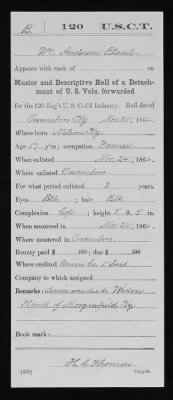 B. 120 U.S.C.T.
Wm. Andrew Bland
Appears with rank of on
Muster and Descriptive Roll of a Detach-
ment of U. S. Vols. forwarded
for the 120 Reg't U. S. Col'd Infantry. Roll dated
Owensboro Ky Nov. 30, 1864.
Where born Nelson Ky.
Age 17 y'rs; occupation Farmer
When enlisted Nov. 24, 1864.
Where enlisted Owensboro
For what period enlisted 3 years.
Eyes Blk; hair Blk
Complexion ; height 5 ft. 5 in.
When mustered in Nov. 26, 1864.
Where mustered in Owensboro
Bounty paid $ 100; due $ 100
Where credited Dist
Company to which assigned
Remarks: Service was due to
of Morganfield Ky
Book mark:
H. C. Thomas
(339) Copyist.